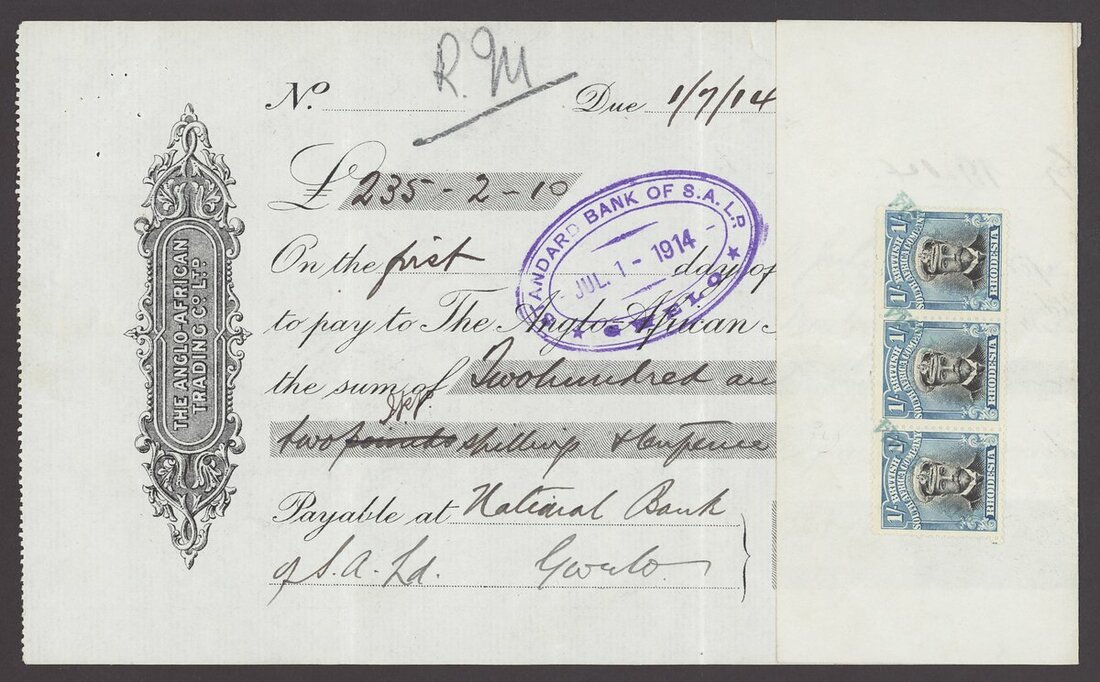 R.M
No.
Due 1/7/14
£ 235-2-10
THE ANGLO-AFRICAN
TRADING CO. LTD
STANDARD BANK OF S.A. LD.
JUL. 1 - 1914 -
On the first day of
to pay to The Anglo-African
the sum of Twohundred an
two shillings & tenpence
Payable at National Bank
of S.A. Ld. Gwelo.
1/- BRITISH 1/-
SOUTH AFRICA COMPANY
RHODESIA
1/- BRITISH 1/-
SOUTH AFRICA COMPANY
RHODESIA
1/- BRITISH 1/-
SOUTH AFRICA COMPANY
RHODESIA